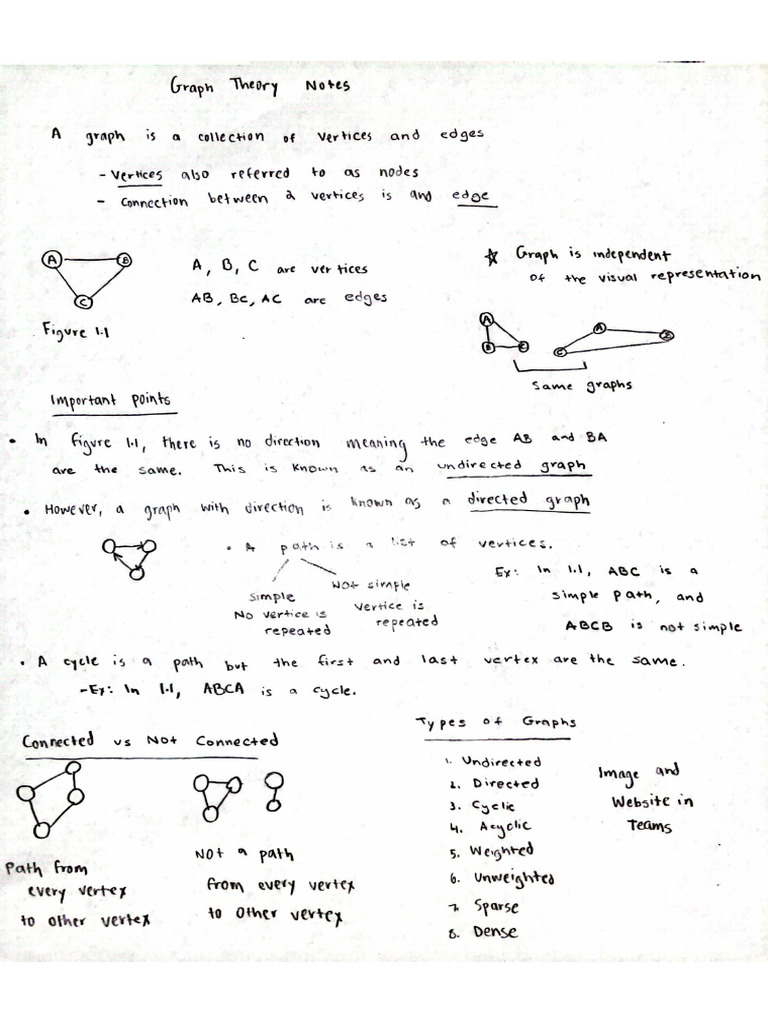 Graph Theory Notes
A graph is a collection of vertices and edges
- Vertices also referred to as nodes
- Connection between 2 vertices is and edge
A B
C
Figure 1.1
A, B, C are vertices
AB, BC, AC are edges
☆ Graph is independent
of the visual representation
A
B C
A
C B
Same graphs
Important points
• In figure 1.1, there is no direction meaning the edge AB and BA
are the same. This is known as an undirected graph
• However, a graph with direction is known as a directed graph
• A path is a list of vertices.
Simple
No vertice is
repeated
Not simple
Vertice is
repeated
Ex: In 1.1, ABC is a
simple path, and
ABCB is not simple
• A cycle is a path but the first and last vertex are the same.
- Ex: In 1.1, ABCA is a cycle.
Connected vs Not Connected
Path from
every vertex
to other vertex
Not a path
from every vertex
to other vertex
Types of Graphs
1. Undirected
2. Directed
3. Cyclic
4. Acyclic
5. Weighted
6. Unweighted
7. Sparse
8. Dense
Image and
Website in
Teams